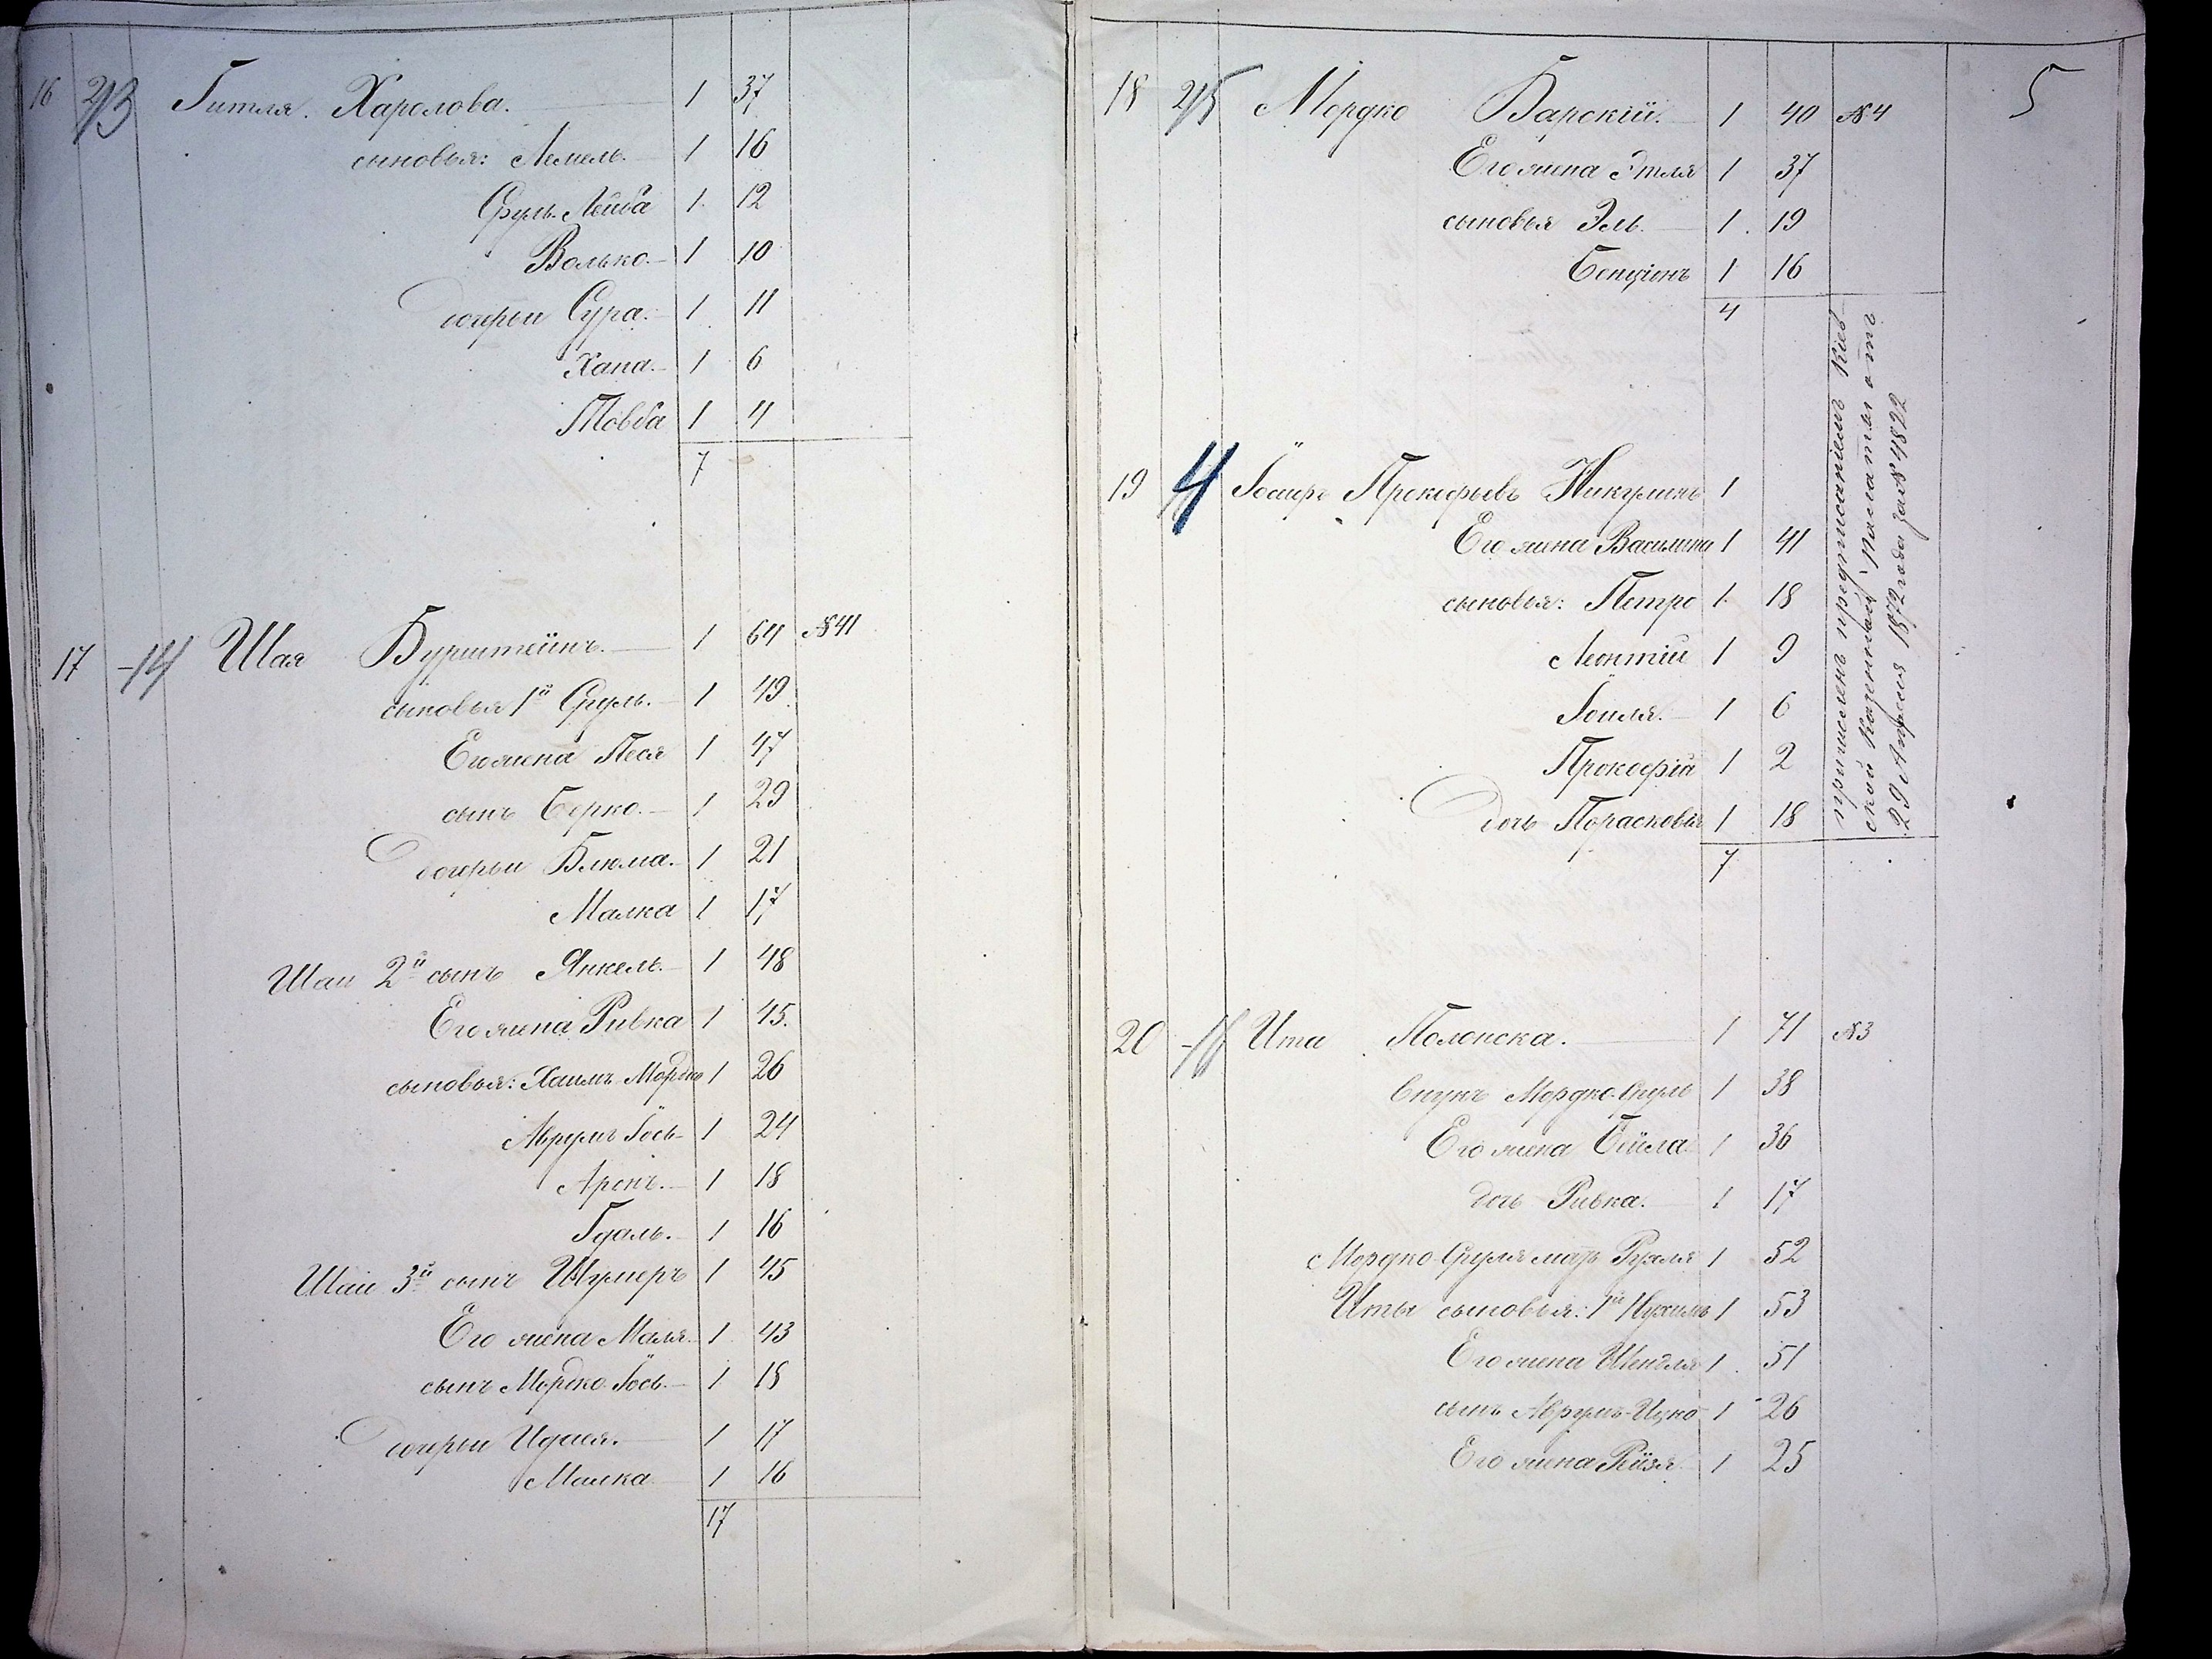 16 2/13 Гитля. Харолова. 1 37
сыновья: Лемель. 1 16
Сруль-Лейба 1 12
Волько. 1 10
дочери Сура. 1 11
Хана. 1 6
Товба 1 4
7
17 -14 Шая Бурштейнъ. 1 64 №41
сыновья 1й Сруль. 1 49
Его жена Песя 1 47
сынъ Берко. 1 29
дочери Блюма. 1 21
Малка 1 17
Шаи 2й сынъ Янкель. 1 48
Его жена Ривка 1 45.
сыновья: Хаимъ-Мордко 1 26
Аврумъ Іось 1 24
Аронъ. 1 18
Гдаль. 1 16
Шаи 3й сынъ Шумеръ 1 45
Его жена Маля. 1 43
сынъ Мордко-Іось. 1 18
дочери Идася. 1 17
Малка 1 16
17
5
18 2/15 Мордко Барскій. 1 40 №4
Его жена Этля 1 37
сыновья Эль. 1 19
Бенціонъ 1 16
4
19 4 Прокофьевъ Никулинъ 1
Его жена Василина 1 41
сыновья: Петро 1 18
Леонтій 1 9
1 6
Прокофій 1 2
дочь Порасковья 1 18
7
причисленъ предписаніемъ Кіев-
ской Казенной Палаты отъ
29 Апреля 1872 года за №4822
20 -16 Ита Полонска. 1 71 №3
Внукъ Мордко-Сруль 1 38
Его жена Бейла 1 36
дочь Ривка. 1 17
Мордко-Сруля мать Рузля 1 52
Иты сыновья: 1й Нухимъ 1 53
Его жена Шендля 1 51
сынъ Аврумъ-Ицко 1 26
Его жена Рейзя 1 25